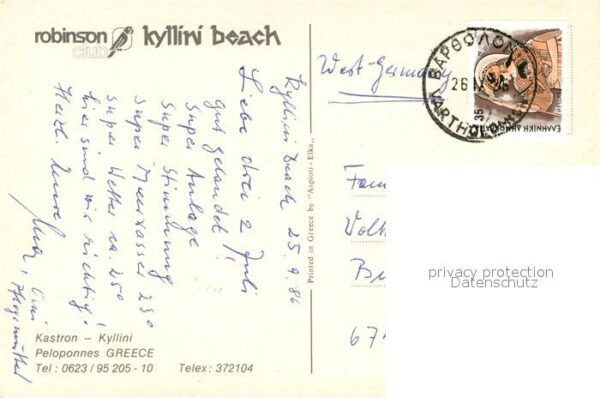 robinson
CLUB
kyllini beach
Kyllini Beach 25.9.86
Liebe drei 2 Juli
gut gelandet!
Super Anlage
Super Stimmung
Super Meerwasser 23°
Super Wetter ca. 25°
hier sind wir richtig!
Herzl. Eure
Kastron – Kyllini
Peloponnes GREECE
Tel : 0623 / 95 205 - 10 Telex : 372104
Printed in Greece by "Aspioti - Elka"
West-Germany
ΒΑΡΘΟΛΟΜ
26 IX 86
VARTHOLOMION
35
ΕΛΛΗΝΙΚΗ ΔΗΜΟΚΡΑΤΙΑ
Fam
Volk
67
privacy protection
Datenschutz